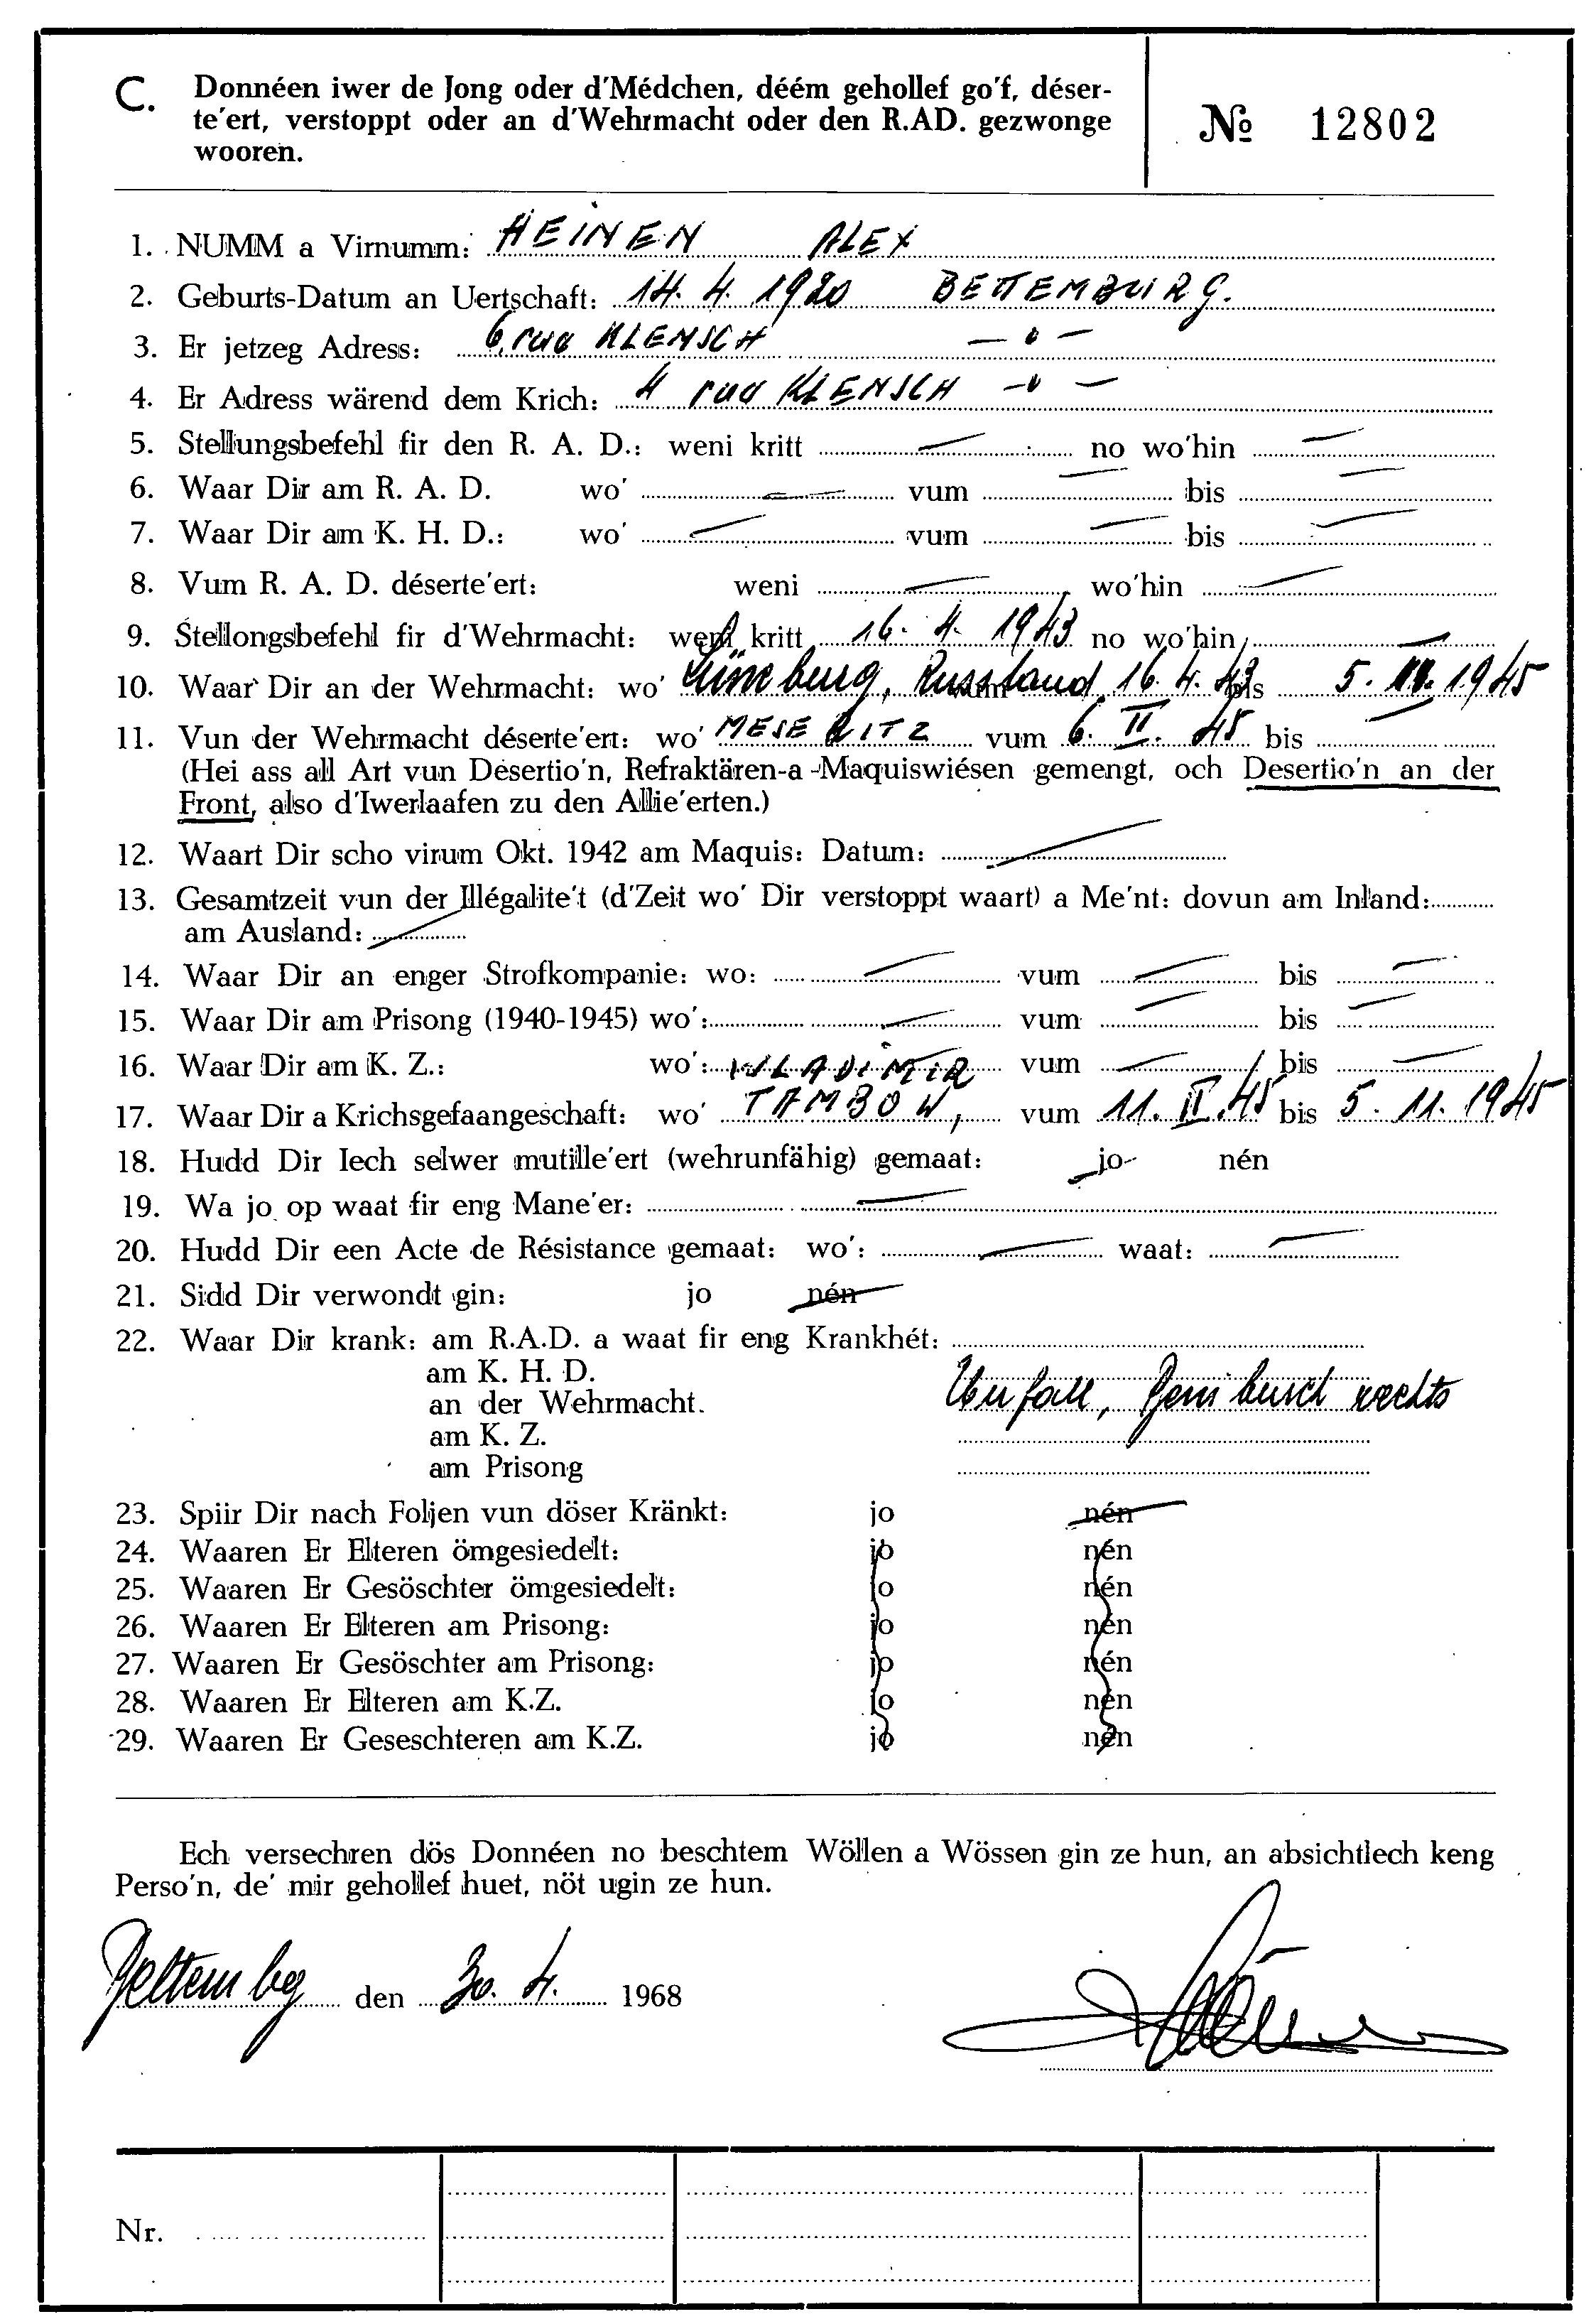 C. Donnéen iwer de Jong oder d'Médchen, déém gehollef go'f, déser-
te'ert, verstoppt oder an d'Wehrmacht oder den R.AD. gezwonge
wooren.
№ 12802
1. NUMM a Virnumm: HEINEN ALEX
2. Geburts-Datum an Uertschaft: 14. 4. 1920 BETTEMBURG.
3. Er jetzeg Adress: 6, rue KLENSCH — " —
4. Er Adress wärend dem Krich: 4 rue KLENSCH — " —
5. Stellungsbefehl fir den R. A. D.: weni kritt — no wo'hin —
6. Waar Dir am R. A. D. wo' — vum — bis —
7. Waar Dir am K. H. D.: wo' — vum — bis —
8. Vum R. A. D. déserte'ert: weni — wo'hin —
9. Stellongsbefehl fir d'Wehrmacht: weni kritt 16. 4. 1943 no wo'hin —
10. Waar Dir an der Wehrmacht: wo' Lüneburg, Russland vum 16. 4. 43 bis 5. 1945
11. Vun der Wehrmacht déserte'ert: wo' MESERITZ vum 6. II. 45 bis —
(Hei ass all Art vun Desertio'n, Refraktären-a-Maquiswiésen gemengt, och Desertio'n an der
Front, also d'Iwerlaafen zu den Allie'erten.)
12. Waart Dir scho virum Okt. 1942 am Maquis: Datum: —
13. Gesamtzeit vun der Illégalite't (d'Zeit wo' Dir verstoppt waart) a Me'nt: dovun am Inland:
am Ausland: —
14. Waar Dir an enger Strofkompanie: wo: — vum — bis —
15. Waar Dir am Prisong (1940-1945) wo': — vum — bis —
16. Waar Dir am K. Z.: wo': — vum — bis —
WLADIMIR
17. Waar Dir a Krichsgefaangeschaft: wo' TAMBOW, vum 11. II. 45 bis 5. 11. 1945
18. Hudd Dir Iech selwer mutille'ert (wehrunfähig) gemaat: jo nén
19. Wa jo op waat fir eng Mane'er: —
20. Hudd Dir een Acte de Résistance gemaat: wo': — waat: —
21. Sidd Dir verwondt gin: jo nén
22. Waar Dir krank: am R.A.D. a waat fir eng Krankhét:
am K. H. D.
an der Wehrmacht. rechts
am K. Z.
am Prisong
23. Spiir Dir nach Foljen vun döser Kränkt: jo nén
24. Waaren Er Elteren ömgesiedelt: jo nén
25. Waaren Er Gesöschter ömgesiedelt: jo nén
26. Waaren Er Elteren am Prisong: jo nén
27. Waaren Er Gesöschter am Prisong: jo nén
28. Waaren Er Elteren am K.Z. jo nén
29. Waaren Er Geseschteren am K.Z. jo nén
Ech versechren dös Donnéen no beschtem Wöllen a Wössen gin ze hun, an absichtlech keng
Perso'n, de' mir gehollef huet, nöt ugin ze hun.
Bettembg den 30. 4. 1968
Nr.